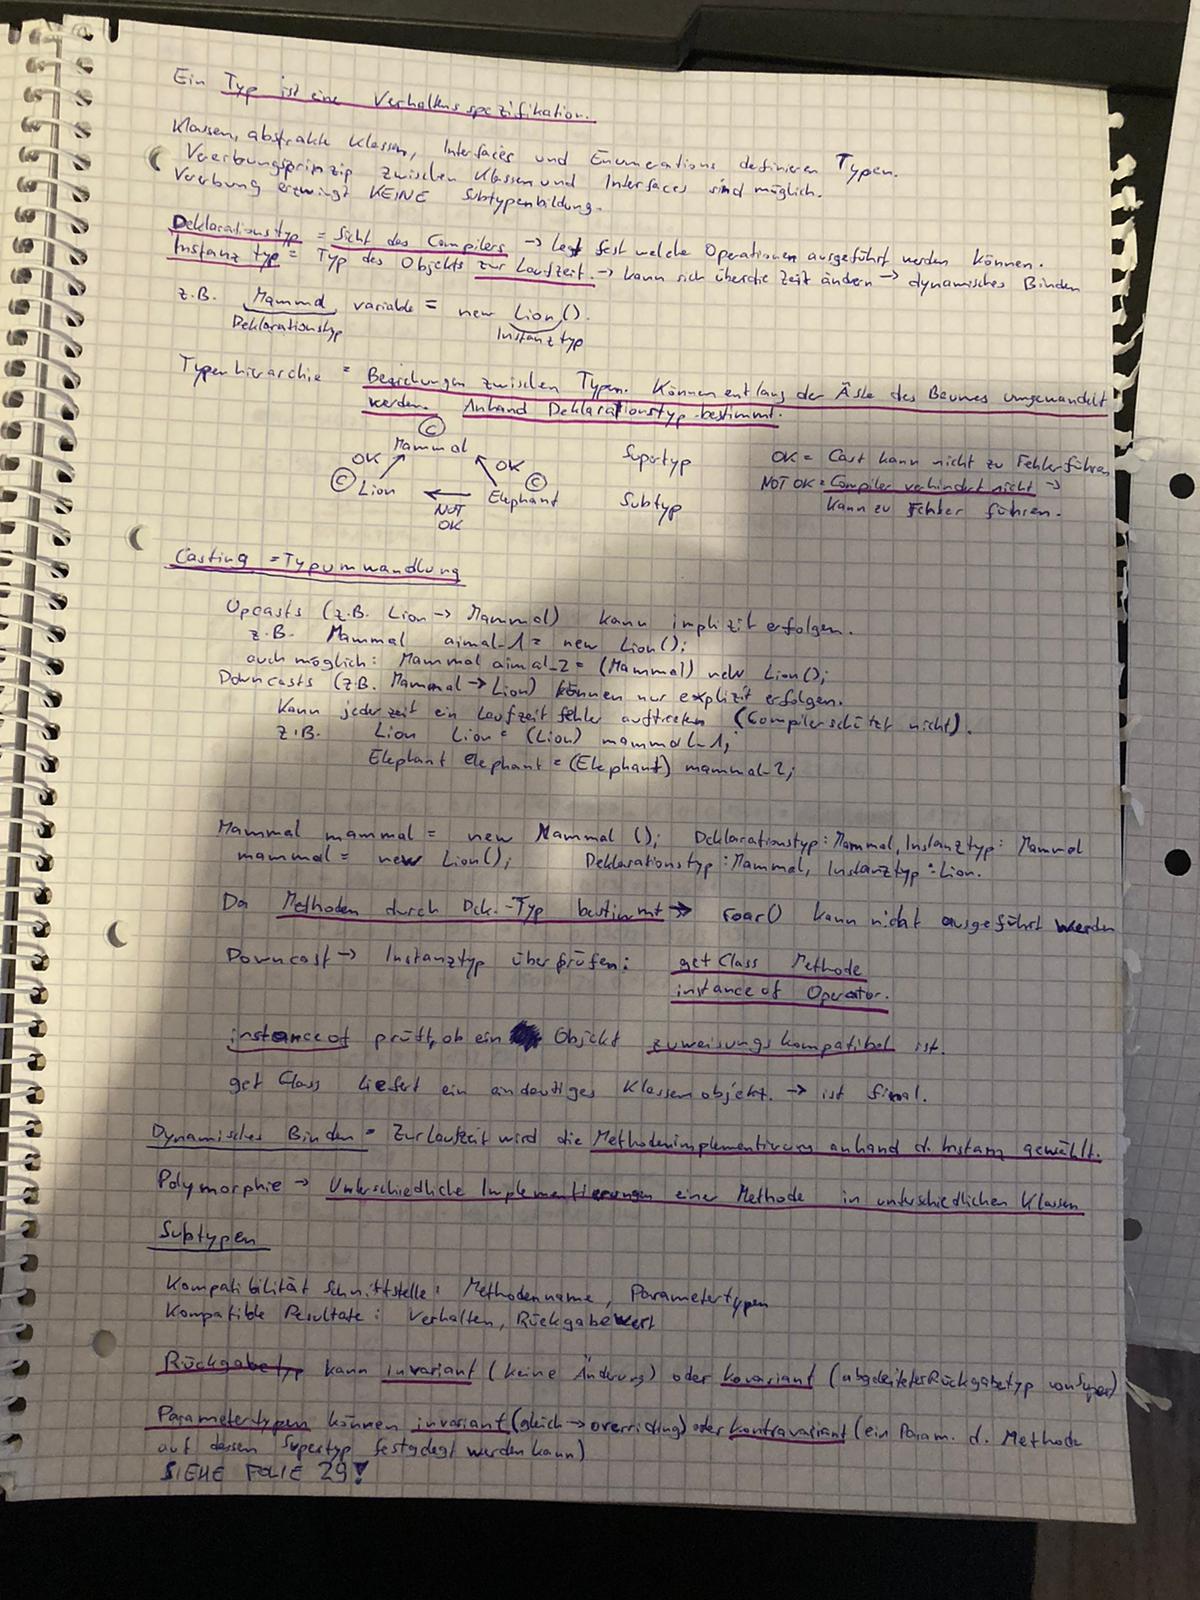 Ein Typ ist eine Verhaltensspezifikation.
Klassen, abstrakte Klassen, Interfaces und Enumerations definieren Typen.
Vererbungsprinzip zwischen Klassen und Interfaces sind möglich.
Vererbung erzwingt KEINE Subtypenbildung.
Deklarationstyp = Sicht des Compilers → legt fest welche Operationen ausgeführt werden können.
Instanztyp = Typ des Objekts zur Laufzeit. → kann sich über die Zeit ändern → dynamisches Binden
z.B. Mammal variable = new Lion().
Deklarationstyp Instanztyp
Typenhierarchie = Beziehungen zwischen Typen. Können entlang der Äste des Baumes umgewandelt
werden. Anhand Deklarationstyp bestimmt.
C
Mammal Supertyp OK = Cast kann nicht zu Fehler führen
OK OK
C Lion ← Elephant C Subtyp NOT OK = Compiler verhindert nicht →
NOT OK kann zu Fehler führen.
Casting = Typumwandlung
Upcasts (z.B. Lion → Mammal) kann implizit erfolgen.
z.B. Mammal aimal_1 = new Lion();
auch möglich: Mammal aimal_2 = (Mammal) new Lion();
Downcasts (z.B. Mammal → Lion) können nur explizit erfolgen.
Kann jederzeit ein Laufzeitfehler auftreten (Compiler schützt nicht).
z.B. Lion Lion = (Lion) mammal_1;
Elephant elephant = (Elephant) mammal_2;
Mammal mammal = new Mammal (); Deklarationstyp: Mammal, Instanztyp: Mammal
mammal = new Lion(); Deklarationstyp: Mammal, Instanztyp: Lion.
Da Methoden durch Dek.-Typ bestimmt → roar() kann nicht ausgeführt werden
Downcast → Instanztyp überprüfen: getClass Methode
instanceof Operator.
instanceof prüft, ob ein Objekt zuweisungskompatibel ist.
getClass liefert ein eindeutiges Klassenobjekt. → ist final.
Dynamisches Binden = Zur Laufzeit wird die Methodenimplementierung anhand d. Instanz gewählt.
Polymorphie → Unterschiedliche Implementierungen einer Methode in unterschiedlichen Klassen
Subtypen
Kompatibilität Schnittstelle: Methodenname, Parametertypen
Kompatible Resultate: Verhalten, Rückgabewert
Rückgabetyp kann invariant (keine Änderung) oder kovariant (abgeleiteter Rückgabetyp von Super)
Parametertypen können invariant (gleich → overriding) oder kontravariant (ein Param. d. Methode
auf dessen Supertyp festgelegt werden kann)
SIEHE FOLIE 29!